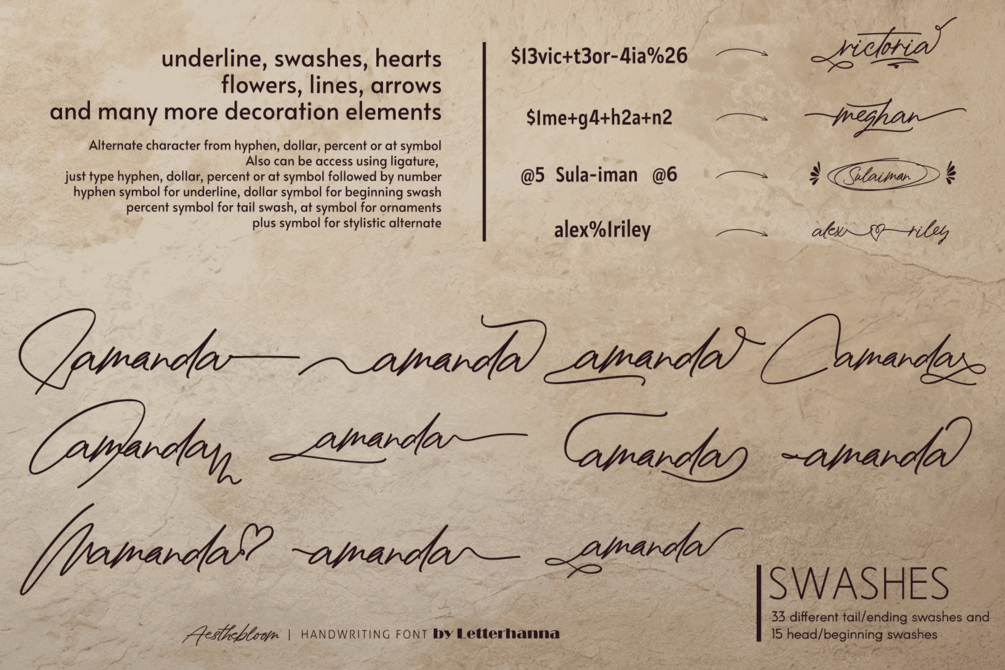 underline, swashes, hearts
flowers, lines, arrows
and many more decoration elements
Alternate character from hyphen, dollar, percent or at symbol
Also can be access using ligature,
just type hyphen, dollar, percent or at symbol followed by number
hyphen symbol for underline, dollar symbol for beginning swash
percent symbol for tail swash, at symbol for ornaments
plus symbol for stylistic alternate
$13vic+t3or-4ia%26 victoria
$1me+g4+h2a+n2 meghan
@5 Sula-iman @6 Sulaiman
alex%1riley alex riley
amanda amanda amanda amanda
amanda amanda amanda amanda
amanda amanda amanda
SWASHES
33 different tail/ending swashes and
15 head/beginning swashes
Aesthebloom | HANDWRITING FONT by Letterhanna